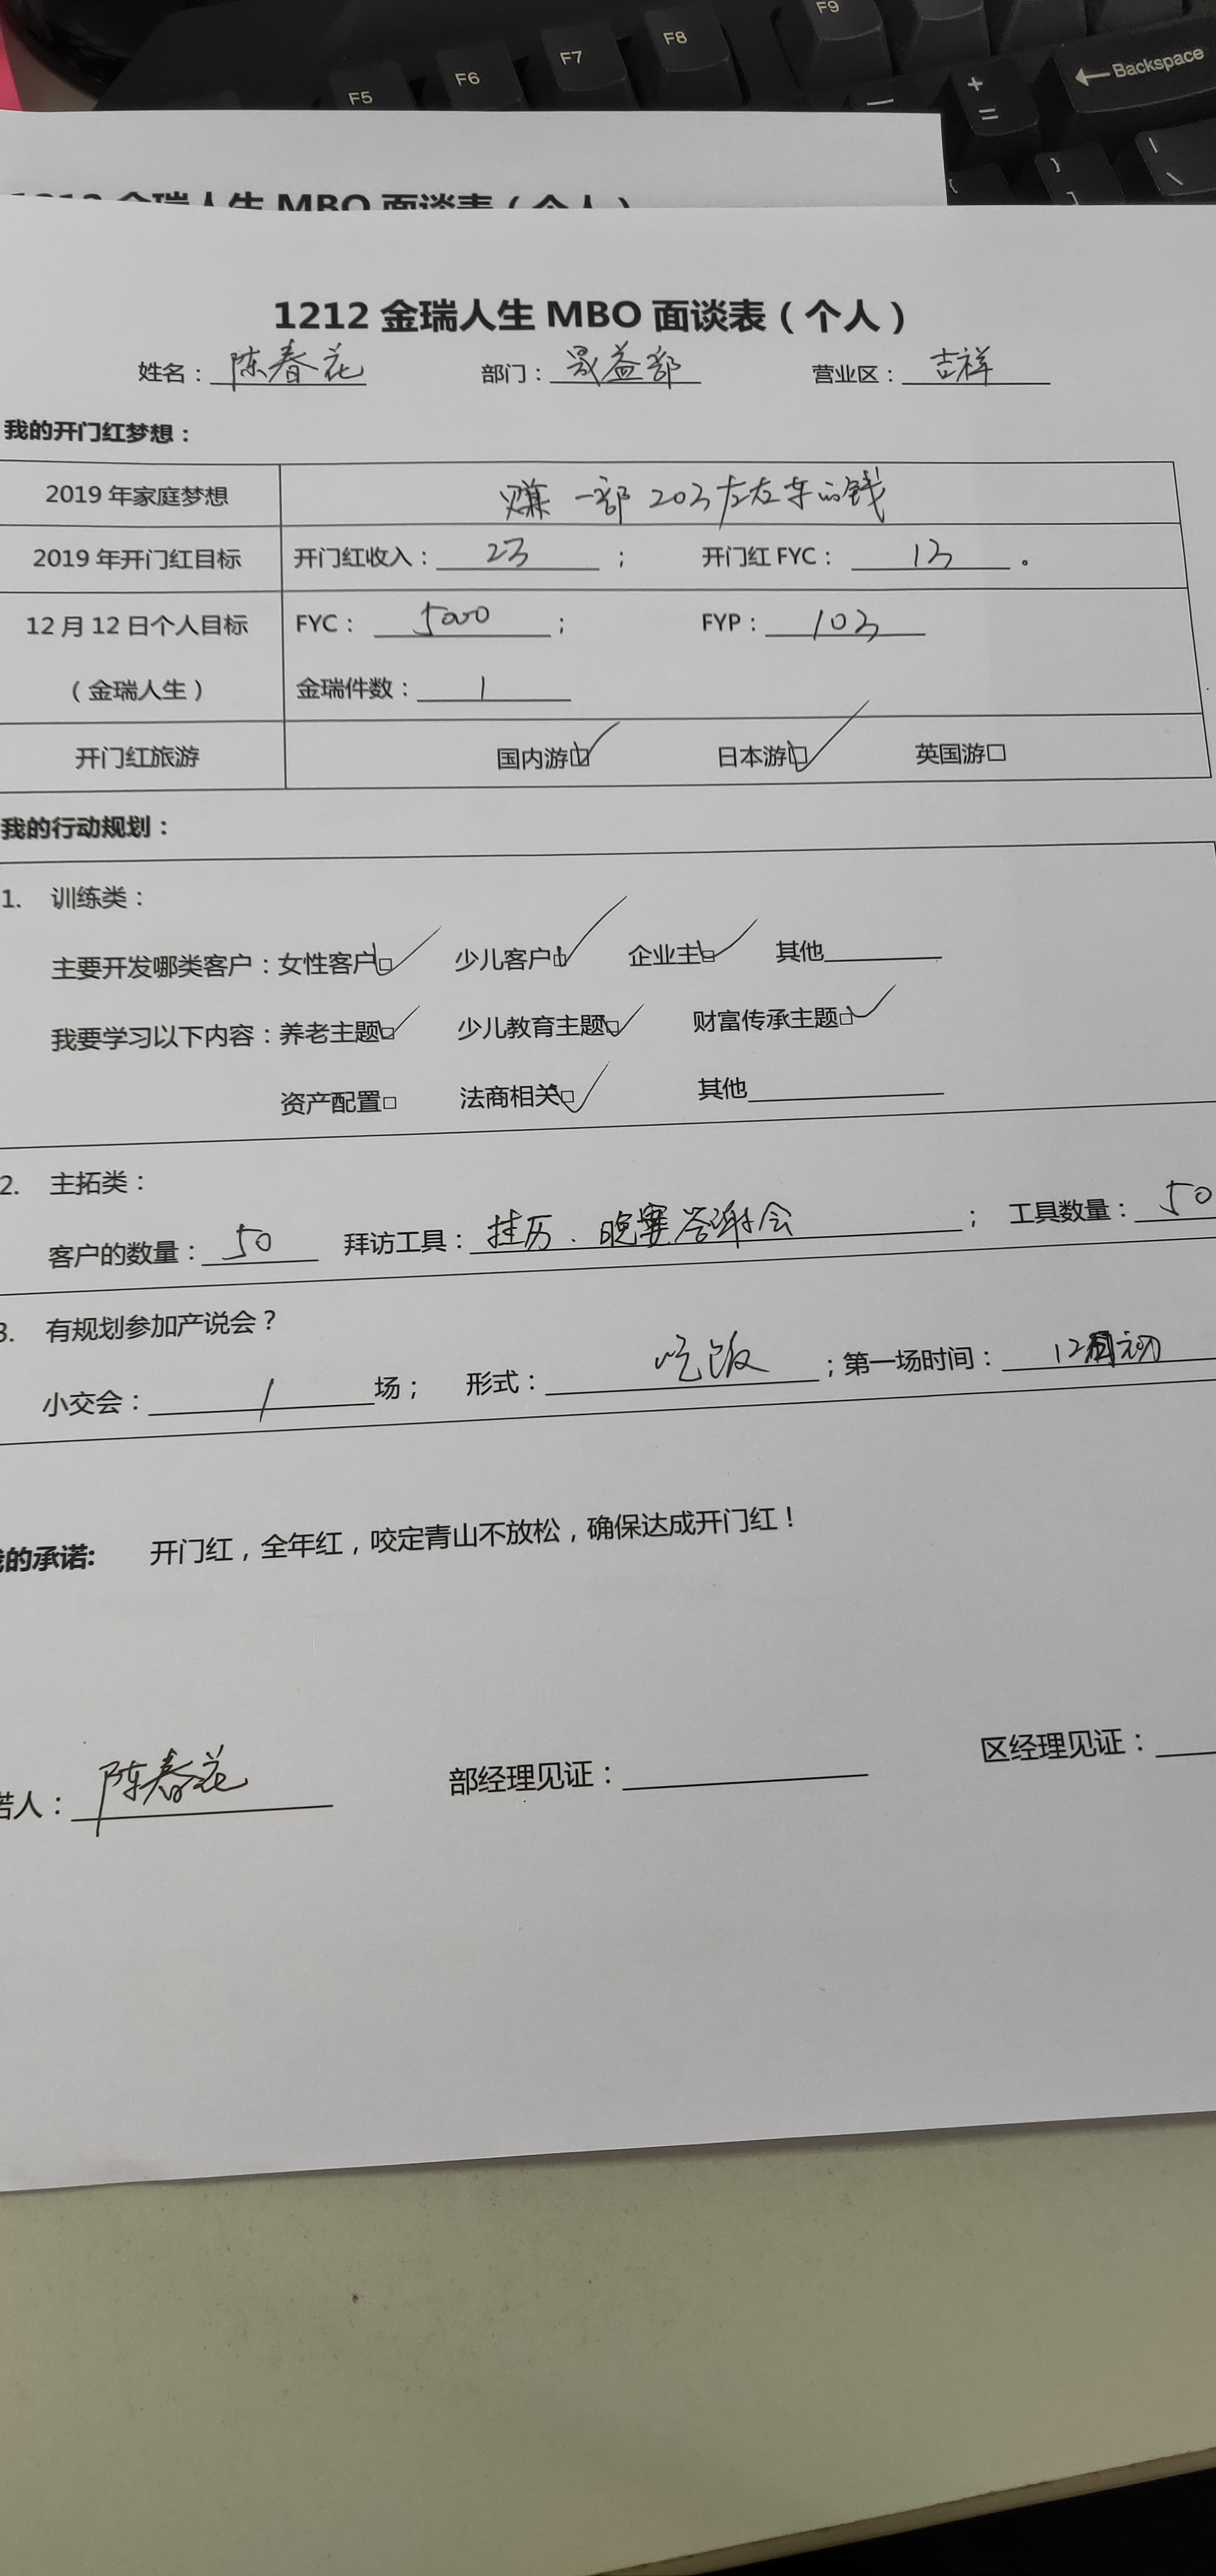 F5 F6 F7 F8 F9
+ = ← Backspace
} ] | \
1212 金瑞人生 MBO 面谈表（个人）
1212 金瑞人生 MBO 面谈表（个人）
姓名：陈春花 部门：晟益部 营业区：吉祥
我的开门红梦想：
2019 年家庭梦想 赚一部20万左右车的钱
2019 年开门红目标 开门红收入：2万； 开门红 FYC：1万。
12 月 12 日个人目标 FYC：5000； FYP：10万
（金瑞人生） 金瑞件数：1
开门红旅游 国内游☑ 日本游☑ 英国游□
我的行动规划：
1. 训练类：
主要开发哪类客户：女性客户☑ 少儿客户☑ 企业主☑ 其他
我要学习以下内容：养老主题☑ 少儿教育主题☑ 财富传承主题☑
资产配置□ 法商相关☑ 其他
2. 主拓类：
客户的数量：50 拜访工具：挂历、晚宴答谢会； 工具数量：50
3. 有规划参加产说会？
小交会：1场； 形式：吃饭；第一场时间：12月初
的承诺: 开门红，全年红，咬定青山不放松，确保达成开门红！
诺人：陈春花 部经理见证： 区经理见证：